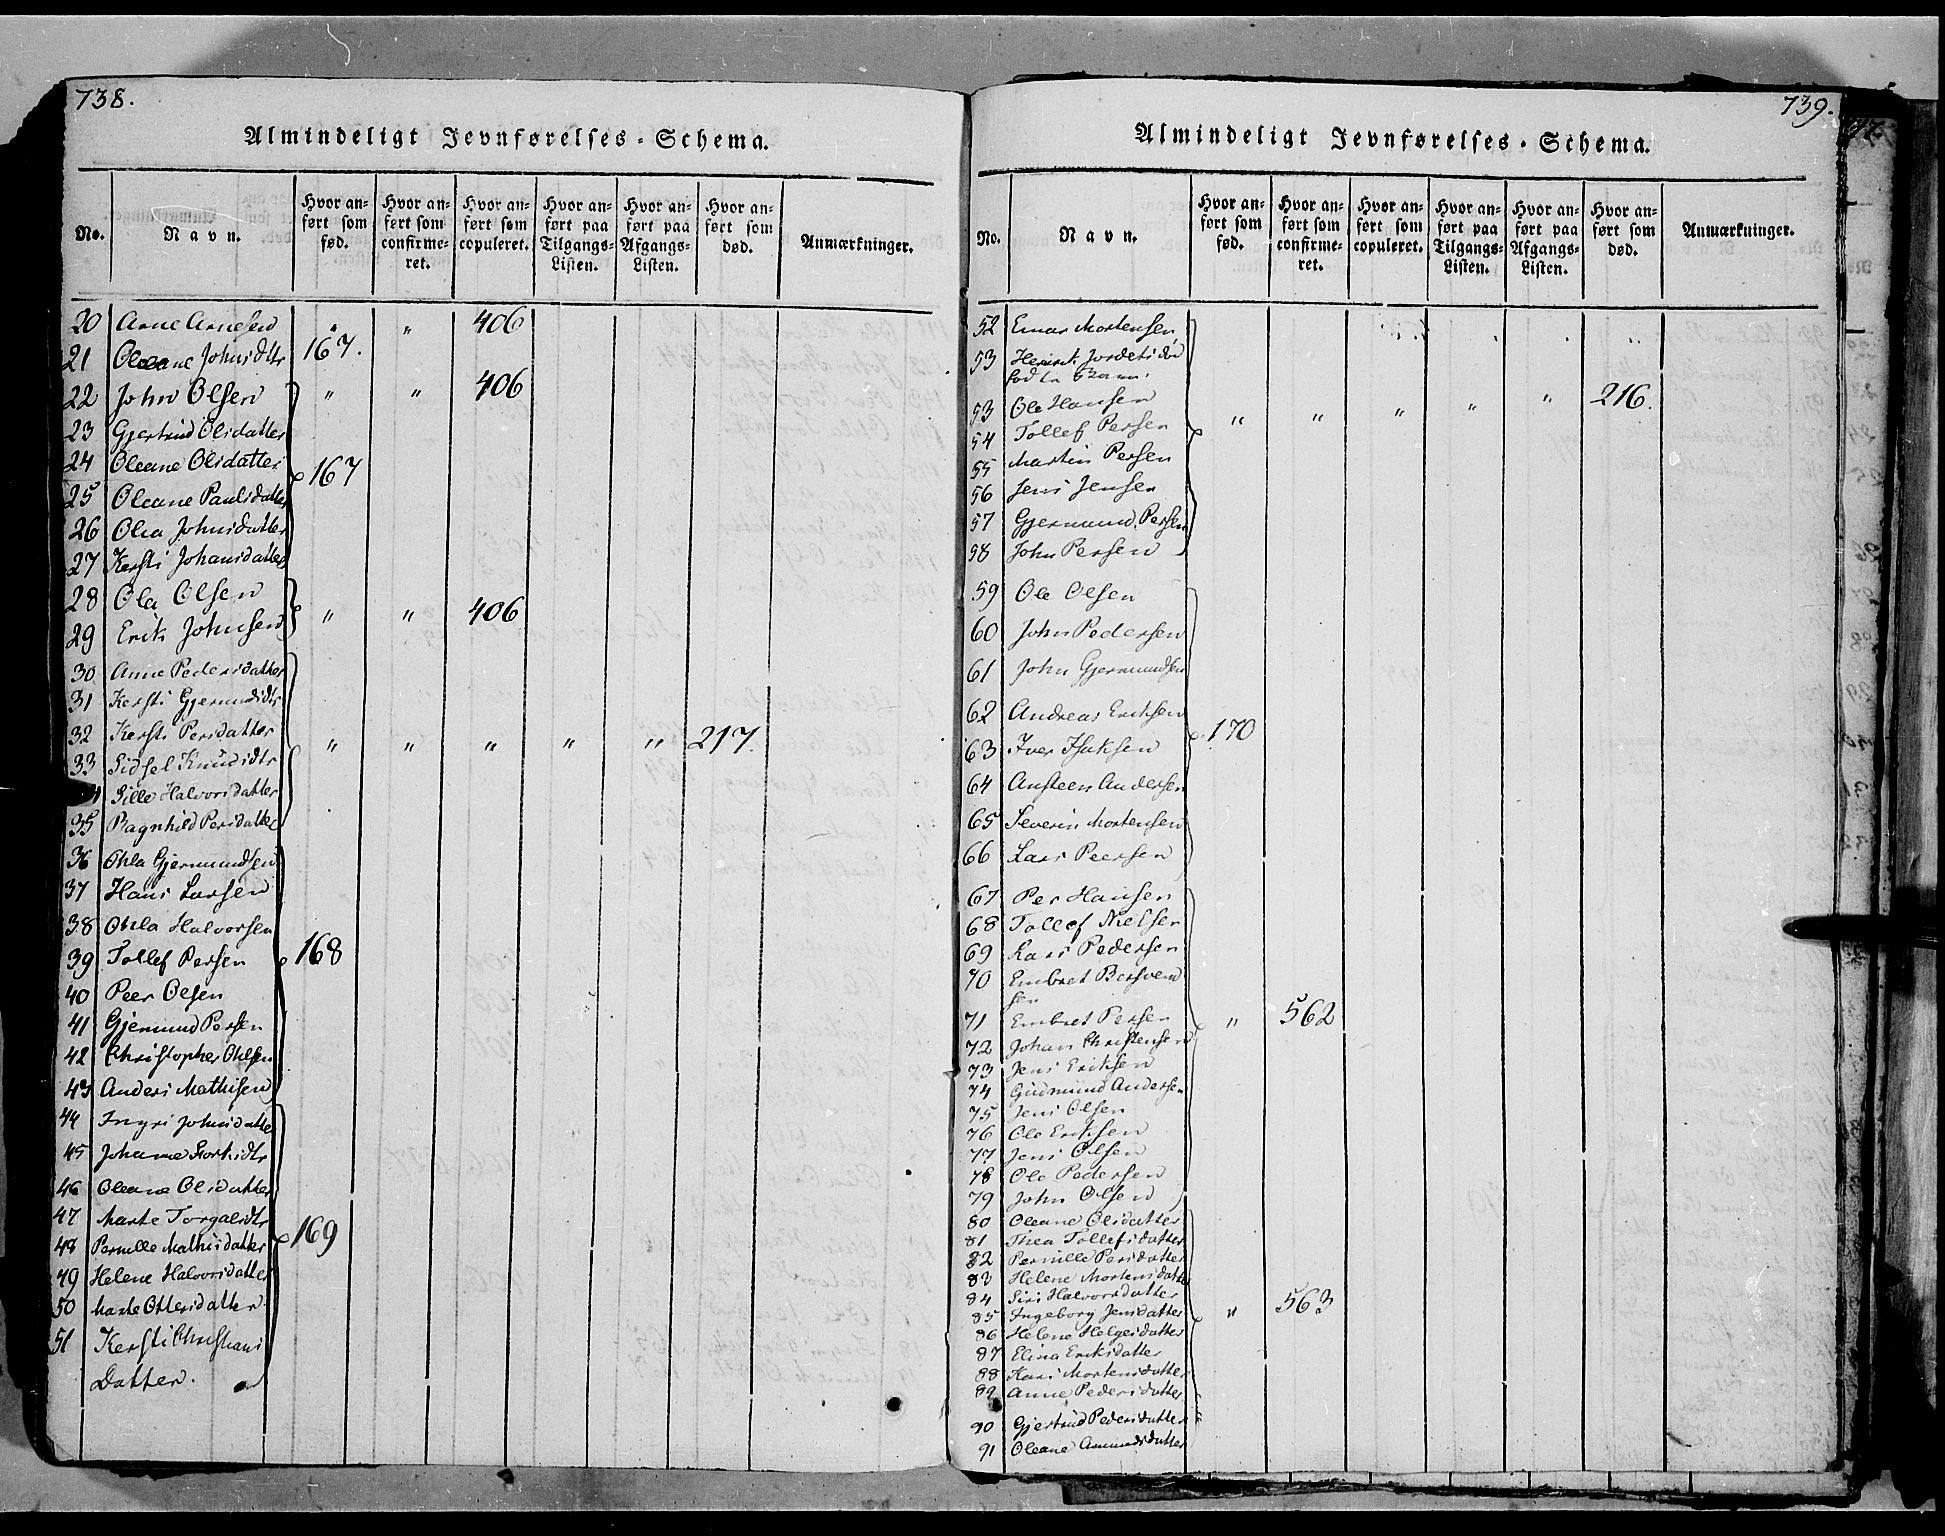 738.
Almindeligt Jevnførelses-Schema.
No.
Navn.
Hvor anført som fød.
Hvor anført som confirmeret.
Hvor anført som copuleret.
Hvor anført paa Tilgangs-Listen.
Hvor anført paa Afgangs-Listen.
Hvor anført som død.
Anmærkninger.
20 Arne Arnesen " " 406
21 Oleane Johnsdtr 167.
22 John Olsen " " 406
23 Gjertrud Olsdatter
24 Oleane Olsdatter 167
25 Oleane Paulsdatter
26 Olea Johnsdatter
27 Kersti Johansdatter
28 Ola Olsen " " 406
29 Erik Johnsen
30 Anne Pedersdatter
31 Kersti Gjermundsdtr
32 Kersti Persdatter " " " " " 217.
33 Sidsel Knudsdtr
Sille Halvorsdatter
35 Ragnhild Persdatter
36 Ohla Gjermundsen
37 Hans Larsen
38 Ohla Halvorsen
39 Tollef Persen 168
40 Peer Olsen
41 Gjermund Persen
42 Christopher Ohlsen
43 Anders Mathisen
44 Ingri Johnsdatter
45 Johanne
46 Oleane Olsdatter
47 Marte Torgalsdtr
48 Pernille Mathisdatter 169
49 Helene Halvorsdatter
50 Marte Ottersdatter
51 Kersti Christians
Datter.
739.
Almindeligt Jevnførelses-Schema.
No.
Navn.
Hvor anført som fød.
Hvor anført som confirmeret.
Hvor anført som copuleret.
Hvor anført paa Tilgangs-Listen.
Hvor anført paa Afgangs-Listen.
Hvor anført som død.
Anmærkninger.
52 Einar Mortensen
53
53 Ole Hansen " " " " " 216.
54 Tollef Persen
55 Martin Persen
56 Jens Jensen
57 Gjermund Persen
58 John Persen
59 Ole Olsen
60 John Pedersen
61 John Gjermundsen
62 Andreas Eriksen
63 Iver Isaksen 170
64 Ansteen Andersen
65 Severin Mortensen
66 Lars Peersen
67 Per Hansen
68 Tollef Nielsen
69 Lars Pedersen
70 Embret Bersvend
sen
71 Embret Persen " 562
72 Johan Christensen
73 Jens Eriksen
74 Gudmund Andersen
75 Jens Olsen
76 Ole Eriksen
77 Jens Olsen
78 Ole Pedersen
79 John Olsen
80 Oleane Olsdatter
81 Thea Tollefsdatter
82 Pernille Persdatter
83 Helene Mortensdatter
84 Siri Halvorsdatter
85 Ingeborg Jensdatter " 563
86 Helene Helgesdatter
87 Elina Eriksdatter
88 Kari Mortensdatter
89 Anne Pedersdatter
90 Gjertrud Pedersdatter
91 Oleane Amundsdatter